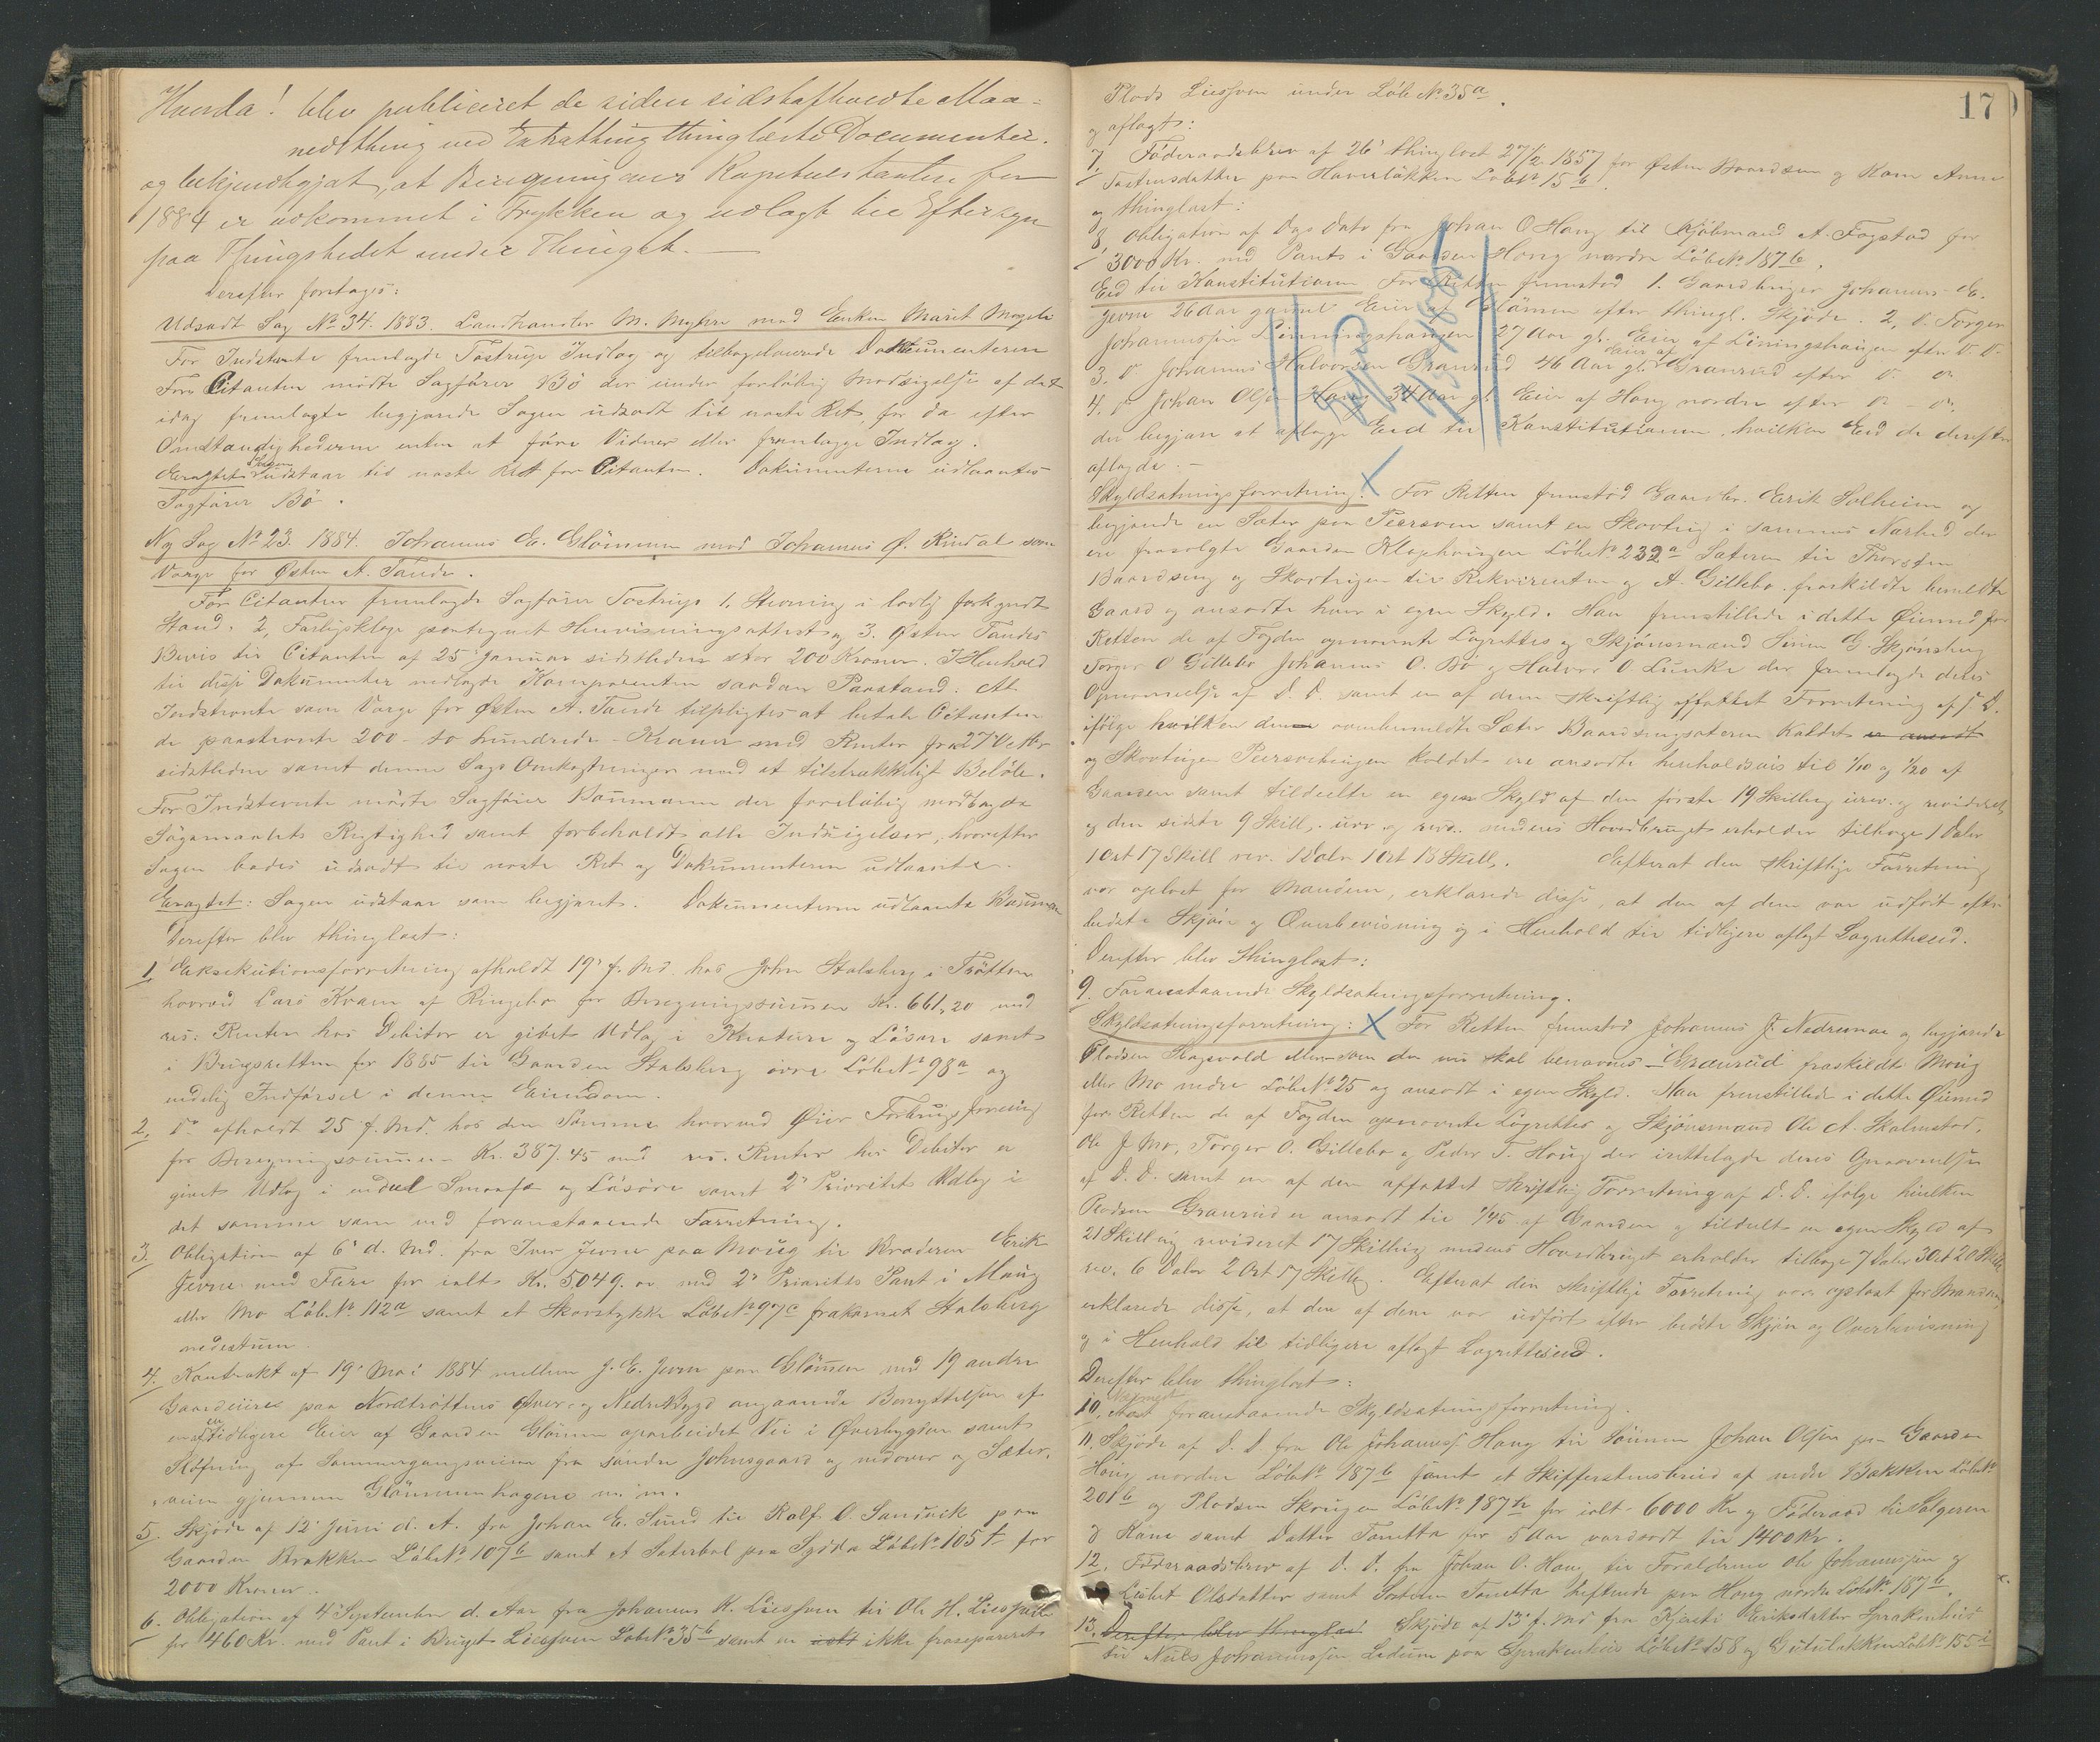 Herda! blev publiceret de siden sidstafholdte Maa-
nedsthing ved Extrathing thinglæste Documenter.
og bekjendtgjort, at Beregning over Kapitelstaxten for
1884 er udkommet i Trykken og udlagt til Eftersyn
paa Thingstedet under Thinget. —
Derefter foretoges:
Udsadt Sag No 34. 1883. Landhandler M. Myhre mod Enken Marit Moseli
For Indstevnte fremlagde Tostrup Indlæg og tilbageleverede Dokumenterne
For Citanten mødte Sagfører Bö der under foreløbig Modsigelse af det
idag fremlagte begjærede Sagen udsadt til næste Ret for da efter
Omstændighederne enten at føre Vidner eller fremlægge Indlæg.
Eragtet: Sagen udstaar til næste Ret for Citanten. Dokumenterne udlaantes
Sagfører Bö.
Ny Sag No 23. 1884. Johannes E. Glömmen mod Johannes O. Rindal som
Værge for Østen A. Tande.
For Citanten fremlagde Sagfører Tostrup 1. Stevning i lovlig forkyndt
Stand. 2, Forligsklage paategnet Henvisningsattest og 3. Østen Tandes
Bevis til Citanten af 25 Januar sidstleden stor 200 Kroner. I Henhold
til disse Dokumenter nedlagde Komparenten saadan Paastand: At
Indstevnte som Værge for Østen A. Tande tilpligtes at betale Citanten
de paastevnte 200 - to hundrede - Kroner med Renter fra 27de
sidstleden samt denne Sags Omkostninger med et tilstrækkeligt Beløb.
For Indstevnte mødte Sagfører Baumann der foreløbig modsagde
Søgsmaalets Rigtighed samt forbeholdt alle Indsigelser, hvorefter
Sagen bades udsadt til næste Ret og Dokumenterne udlaante.
Eragtet: Sagen udstaar som begjæret. Dokumenterne udlaante Bauman
Derefter blev thinglæst:
1. Eksekutionsforretning afholdt 19' f. Md. hos John Stalsberg i Tröttm
hvorved Lars Kvam af Ringebo for Beregningssummen Kr. 661,20 med
vis. Renter hos Debitor er givet Udlæg i Kreature og Løsøre samt
i Brugsretten for 1885 til Gaarden Stalsberg øvre Löbe No 98a og
endelig Indførsel i denne Eiendom.
2. Do afholdt 25 f. Md. hos den Samme hvorved Øier Forbrugsforening
for Beregningssummen Kr. 387.45 med vis. Renter hos Debitor er
givet Udlæg i endeel Smaafæ og Løsøre samt 2' Prioritets Udlæg i
det samme som ved foranstaaende Forretning.
3. Obligation af 6' d. Md. fra Iver Jevne paa Moug til Broderen Erik
Jevne med Flere for ialt Kr. 5049. med 2' Prioritets Pant i Moug
eller Mo Löbe No 112a samt et Skovstykke Löbe No 97c frakomet Stalsberg
nedestuen.
4. Kontrakt af 19' Mai 1884 mellem J. E. Jevne paa Glömmen med 19 andre
Gaardeiere paa Nordtröttens Øver- og Nedrebygd angaaende Benyttelsen af
en af tidligere Eier af Gaarden Glömmen oparbeidet Vei i Øverbygden samt
Sløfning af Sommergangsveien fra søndre Johnsgaard og nedover og Sæter-
veien gjennem Glömmenhagerne m. m.
5. Skjøde af 12' Juni d. A. fra Johan E. Sund til Rolf O. Sandvik paa
Gaarden Brækken Löbe No 107b samt et Sæterbol paa Löbe No 105f for
2000 Kroner.
6. Obligation af 4' September d. Aar fra Johannes K. Lieshven til Ole H.
for 460 Kr. med Pant i Bruget Lieshven Löbe No 35b samt en ialt ikke fraseparerat
17
Plads Lieshven under Löb No 35a.
og aflagt:
7. Føderaadsbrev af 26' thinglæst 27/2 1857 for Østen Baardsen og Kone Anne
Tostensdatter paa Haverløkken Löbe No 15b.
og thinglæst:
8. Obligation af Dags Dato fra Johan O Houg til Kjöbmand A. Fagstad for
3000 Kr. med Pant i Gaarden Houg nordre Löbe No 187b.
Eed til Konstitutionen For Retten fremstod 1. Gaardbruger Johannes E.
Jevne 26 Aar gammel Eier af Glömmen efter thingl. Skjøde. 2, Do Torger
Johannessen Linningshaugen 27 Aar gl. Eier af Linningshaugen efter D. D.
3. Do Johannes Halvorsen Granrud 46 Aar gl. Eier af Granrud efter Do Do
4. Do Johan Olsen Houg 34 Aar gl. Eier af Houg nordre efter Do - Do.
der begjær at aflægge Eed til Konstitutionen, hvilken Eed de derefter
aflagde. —
Skyldsætningsforretning: X For Retten fremstod Gaardbr. Erik Solheim og
begjærede en Sæter paa Peersveen samt en Skovteig i sammes Nærhed der
ere frasolgte Gaarden Klaphougen Löbe No 232a Sæteren til Thorsten
Baardseng og Skovteigen til Rekvirenten og A. Gillebo fraskildte bemeldte
Gaard og ansadte hver i egen Skyld. Han fremstillede i dette Øiemed for
Retten de af Fogden opnævnte Lagrettes og Skjønsmænd Simen G. Skjønsberg
Torger O Gillebo Johannes O. Bö og Halvor O Lunke der fremlagde deres
Opnævnelse af D. D. samt en af dem skriftlig affattet Forretning af D. D.
ifølge hvilken den ovenbemeldte Sæter Baardsengsæteren Kaldet er ansadt
og Skovteigen Peersveteigen kaldet ere ansadte henholdsvis til 1/10 og 1/20 af
Gaarden samt tildeelte en egen Skyld af den første 19 Skilling urev. og revideret,
og den sidste 9 Skill. urev og rev. medens Hovedbruget erholder tilbage 1 Daler
1 Ort 17 Skill rev. 1 Daler 1 Ort 13 Skill. Efterat den skriftlige Forretning
var oplæst for Mændene, erklærede disse, at den af dem var udført efter
bedste Skjøn og Overbevisning og i Henhold til tidligere aflagt Lagretteseed.
Derefter blev Thinglæst:
9. Foranstaaende Skyldsætningsforretning.
Skyldsætningsforretning: X For Retten fremstod Johannes J. Nedremoe og begjærede
Pladsen Hagevold eller — som den nu skal benævnes — Granrud fraskildt Moug
eller Mo nedre Löbe No 25 og ansadt i egen Skyld. Han fremstillede i dette Øiemed
for Retten de af Fogden opnævnte Lagrettes og Skjønsmænd Ole A. Skalmstad,
Ole J Mo, Torger O. Gillebo og Peder T. Houg der irettelagde deres Opnævnelse
af D. D. samt en af dem affattet skriftlig Forretning af D. D. ifølge hvilken
Pladsen Granrud er ansadt til 1/45 af Gaarden og tildeelt en egen Skyld af
21 Skilling revideret 17 Skilling medens Hovedbruget erholder tilbage 7 Daler 3 Ort 20 Skill.
rev. 6 Daler 2 Ort 17 Skilling. Efterat den skriftlige Forretning var oplæst for Mændene,
erklærede disse, at den af dem var udført efter bedste Skjøn og Overbevisning
og i Henhold til tidligere aflagt Lagretteseed.
Derefter blev thinglæst:
10. Nærmest foranstaaende Skyldsætningsforretning.
11. Skjøde af D. D. fra Ole Johanness. Houg til Sönnen Johan Olsen paa Gaarden
Houg nordre Löbe No 187b samt et Skifferstensbrud af nedre Bakken Löbe No
201b og Pladsen Skougen Löbe No 187h for ialt 6000 Kr og Føderaad til Sælgeren
& Kone samt Datter Tonetta for 5 Aar værdsadt til 1400 Kr.
12. Føderaadsbrev af D. D. fra Johan O. Houg til Forældrene Ole Johannessen og
Lisbet Olsdatter samt Søsteren Tonetta heftende paa Houg nordre Löbe No 187b.
13. Derefter blev thinglæst Skjøde af 13' f. Md fra Kjersti Eriksdatter Sprakenhus
til Niels Johannessen Ledum paa Sprakenhus Löbe No 158 og Löbe No 155